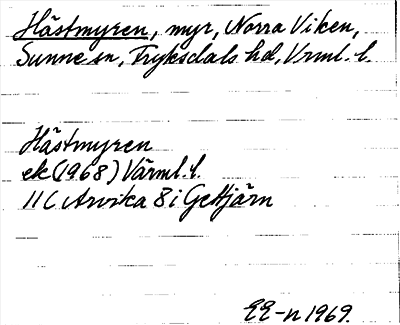 Hästmyren, myr, Norra Viken,
Sunne sn, Fryksdals hd, Vrml. l.
Hästmyren
ek (1968) Värml. l.
11 C Arvika 8 i Getjärn
EE-n 1969.